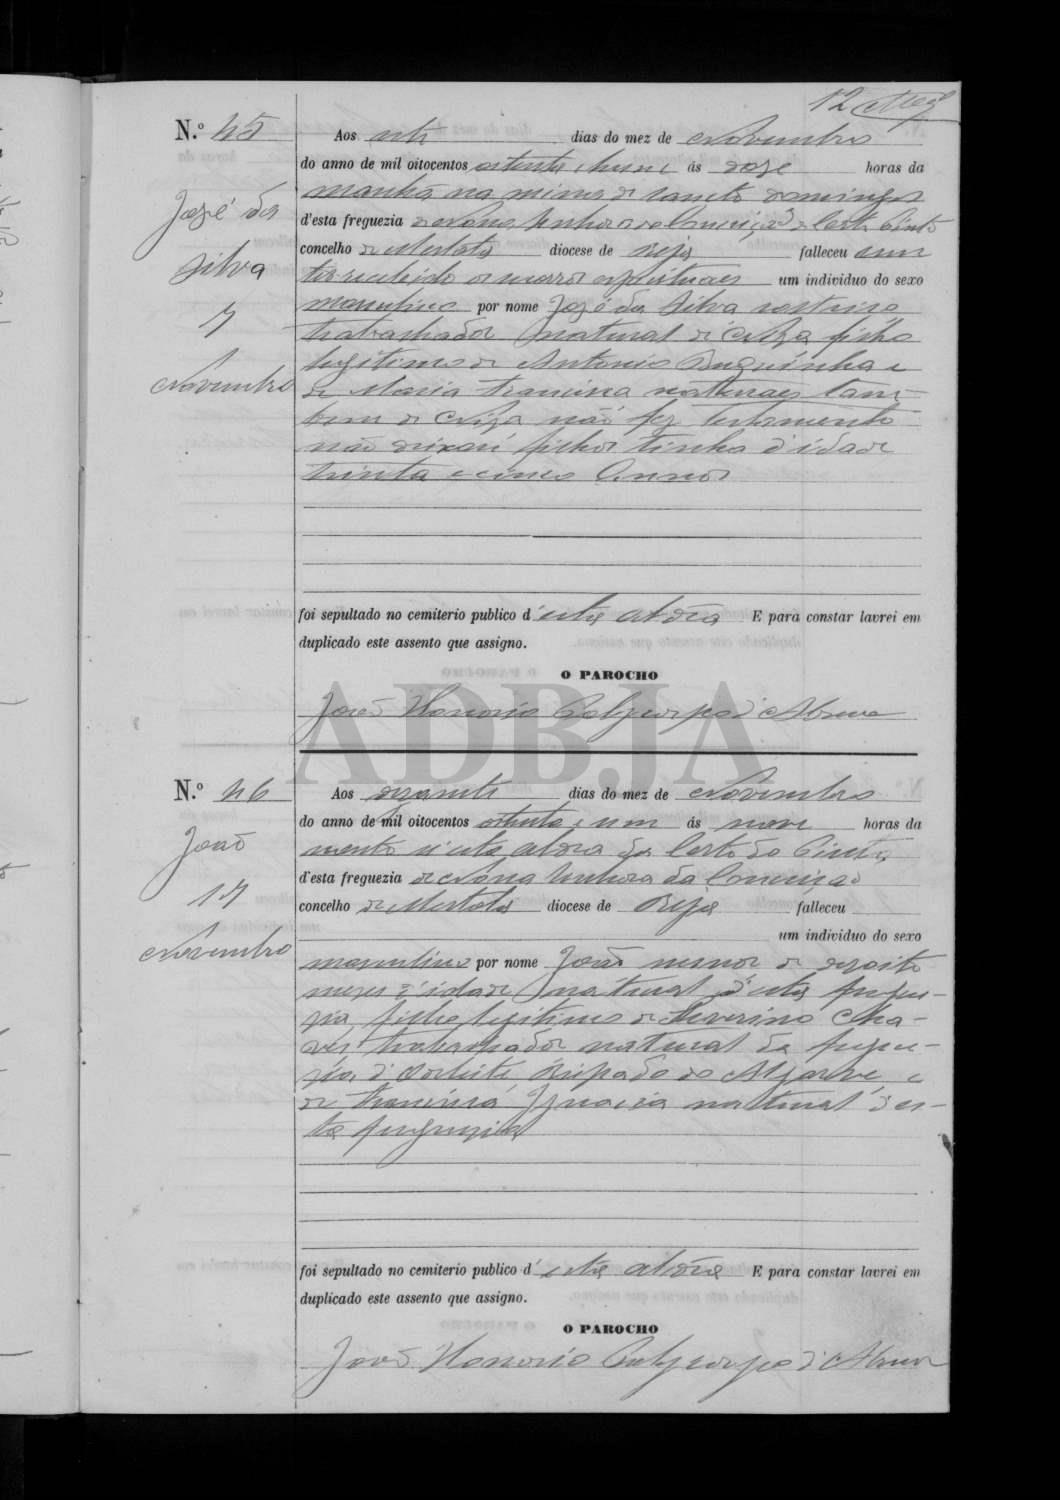 12
N.º 45 Aos sete dias do mez de Novembro
do anno de mil oitocentos oitenta e hum ás doze horas da
manhã na mina de Sancto Domingos
José da d'esta freguezia de Nossa Senhora da Conceição de Corte do Pinto
Silva concelho de Mertola diocese de Beja falleceu sem
ter recebido os sacramentos espirituaes um individuo do sexo
7 masculino por nome José da Silva
trabalhador natural de Niza filho
legitimo de Antonio e
Novembro de Maria Francisca naturaes tam-
bem de Niza não fez testamento
não deixou filhos tinha d'idade
trinta e cinco annos
foi sepultado no cemiterio publico d'esta aldeia E para constar lavrei em
duplicado este assento que assigno.
O PAROCHO
João Honorio d'Abreu
ADBJA
N.º 46 Aos dezasete dias do mez de Novembro
do anno de mil oitocentos oitenta e um ás nove horas da
João n'esta aldeia da Corte do Pinto
d'esta freguezia de Nossa Senhora da Conceição
17 concelho de Mertola diocese de Beja falleceu
um individuo do sexo
Novembro masculino por nome João menor de dezoito
mezes d'idade natural d'esta fregue-
zia, filho legitimo de Severino Cha-
ves trabalhador natural da fregue-
zia d' Bispado do Algarve, e
de Francisca Ignacia natural d'es-
ta freguezia
foi sepultado no cemiterio publico d'esta aldeia E para constar lavrei em
duplicado este assento que assigno.
O PAROCHO
João Honorio d'Abreu